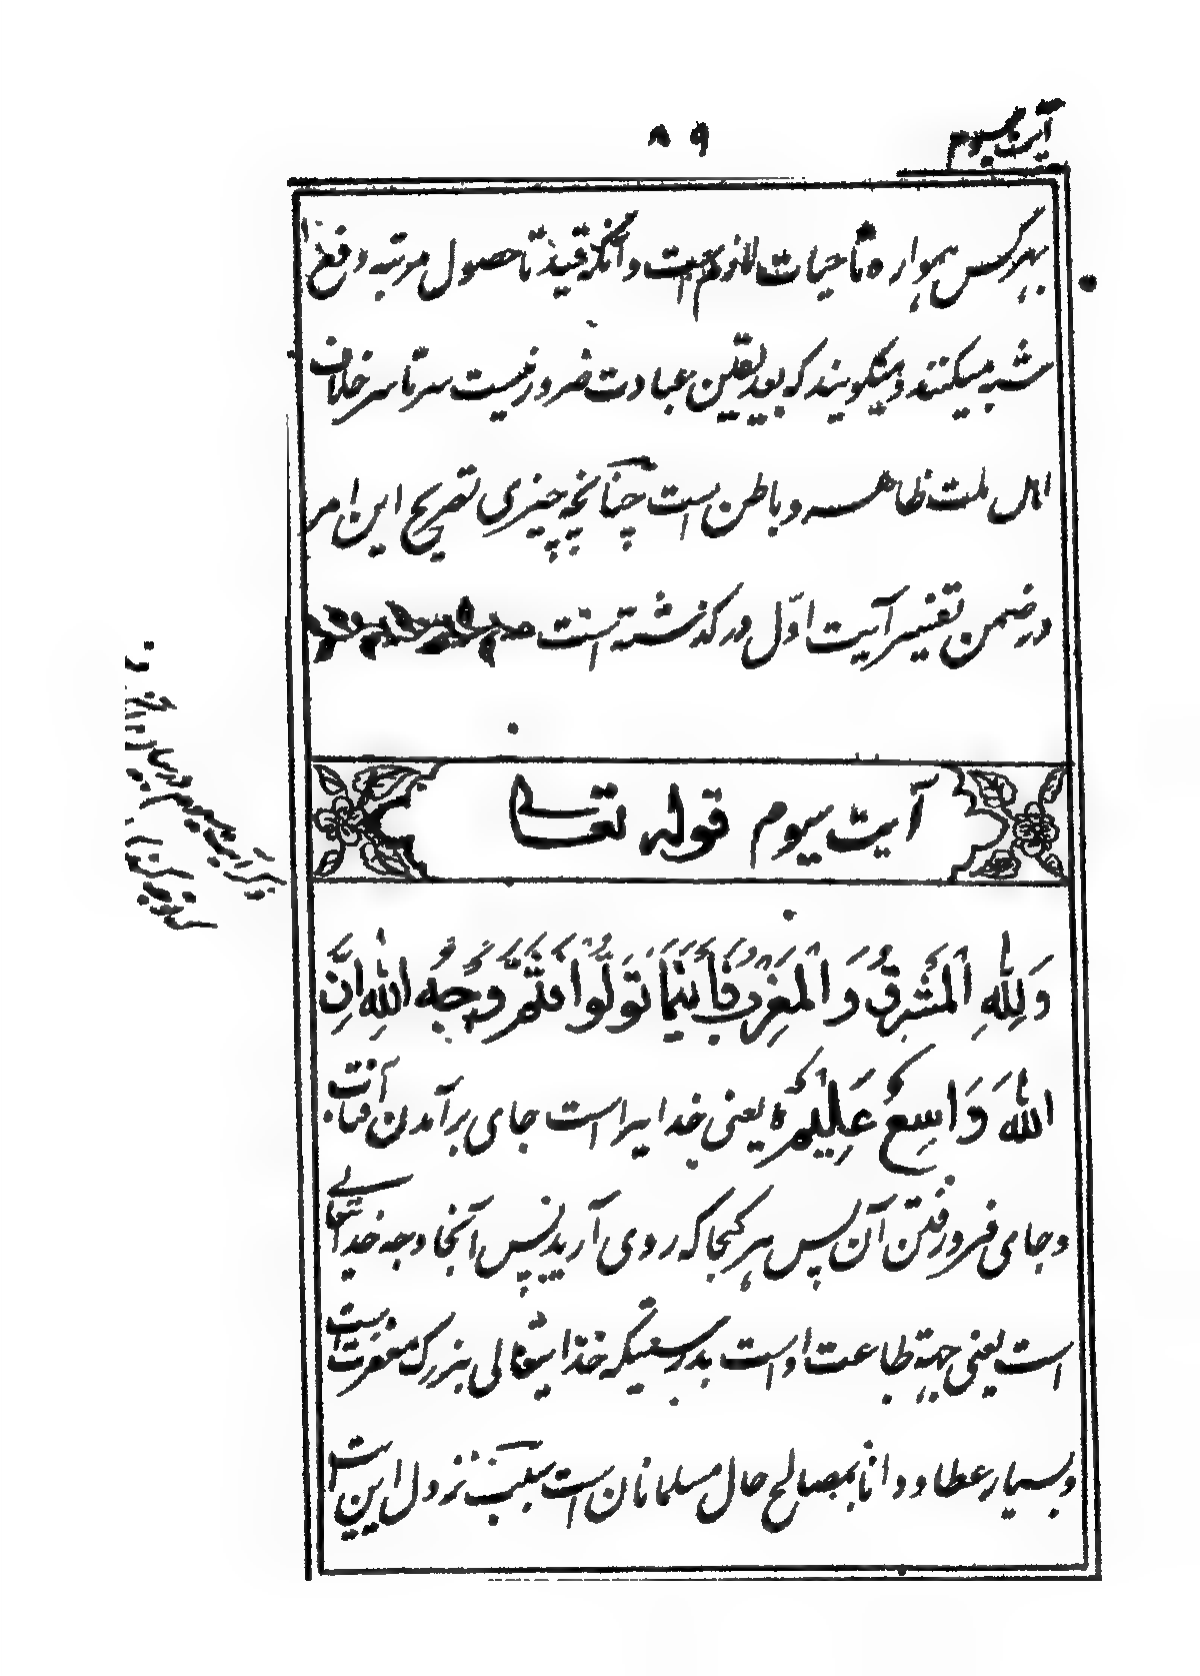 آیت سیوم
۸۹
بهر کس همواره تا حیات لازم است و آنکه قید تا حصول مرتبه رفع
شبه میکنند و میگویند که بعد یقین عبادت ضرور نیست سرتاسر خلاف
اهل ملت ظاهر و باطن است چنانچه چیزی تصریح این امر
در ضمن تفسیر آیت اوّل در گذشته است
آیت سیوم قوله تعالی
وَلِلّٰهِ الْمَشْرِقُ وَالْمَغْرِبُ فَاَیْنَمَا تُوَلُّوا فَثَمَّ وَجْهُ اللّٰهِ اِنَّ
اللّٰهَ وَاسِعٌ عَلِیْمٌ یعنی خدایراست جای برآمدن آفتاب
و جای فرو رفتن آن پس هر کجا که روی آرید پس آنجا وجه خدایتعالی
است یعنی جهة طاعت اوست بدرستیکه خدایتعالی بزرگ مغفرت است
و بسیار عطا و دانا بمصالح حال مسلمانان است سبب نزول این است
ذکر آیت سیوم در بیان